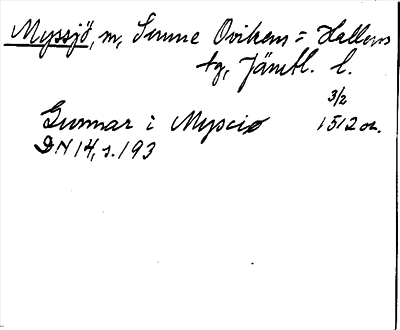 Myssjö, m, Sunne Ovikens = Hallens
tg, Jämtl. l.
3/2
Gunnar i Myscio 1512 or.
DN 14, s. 193